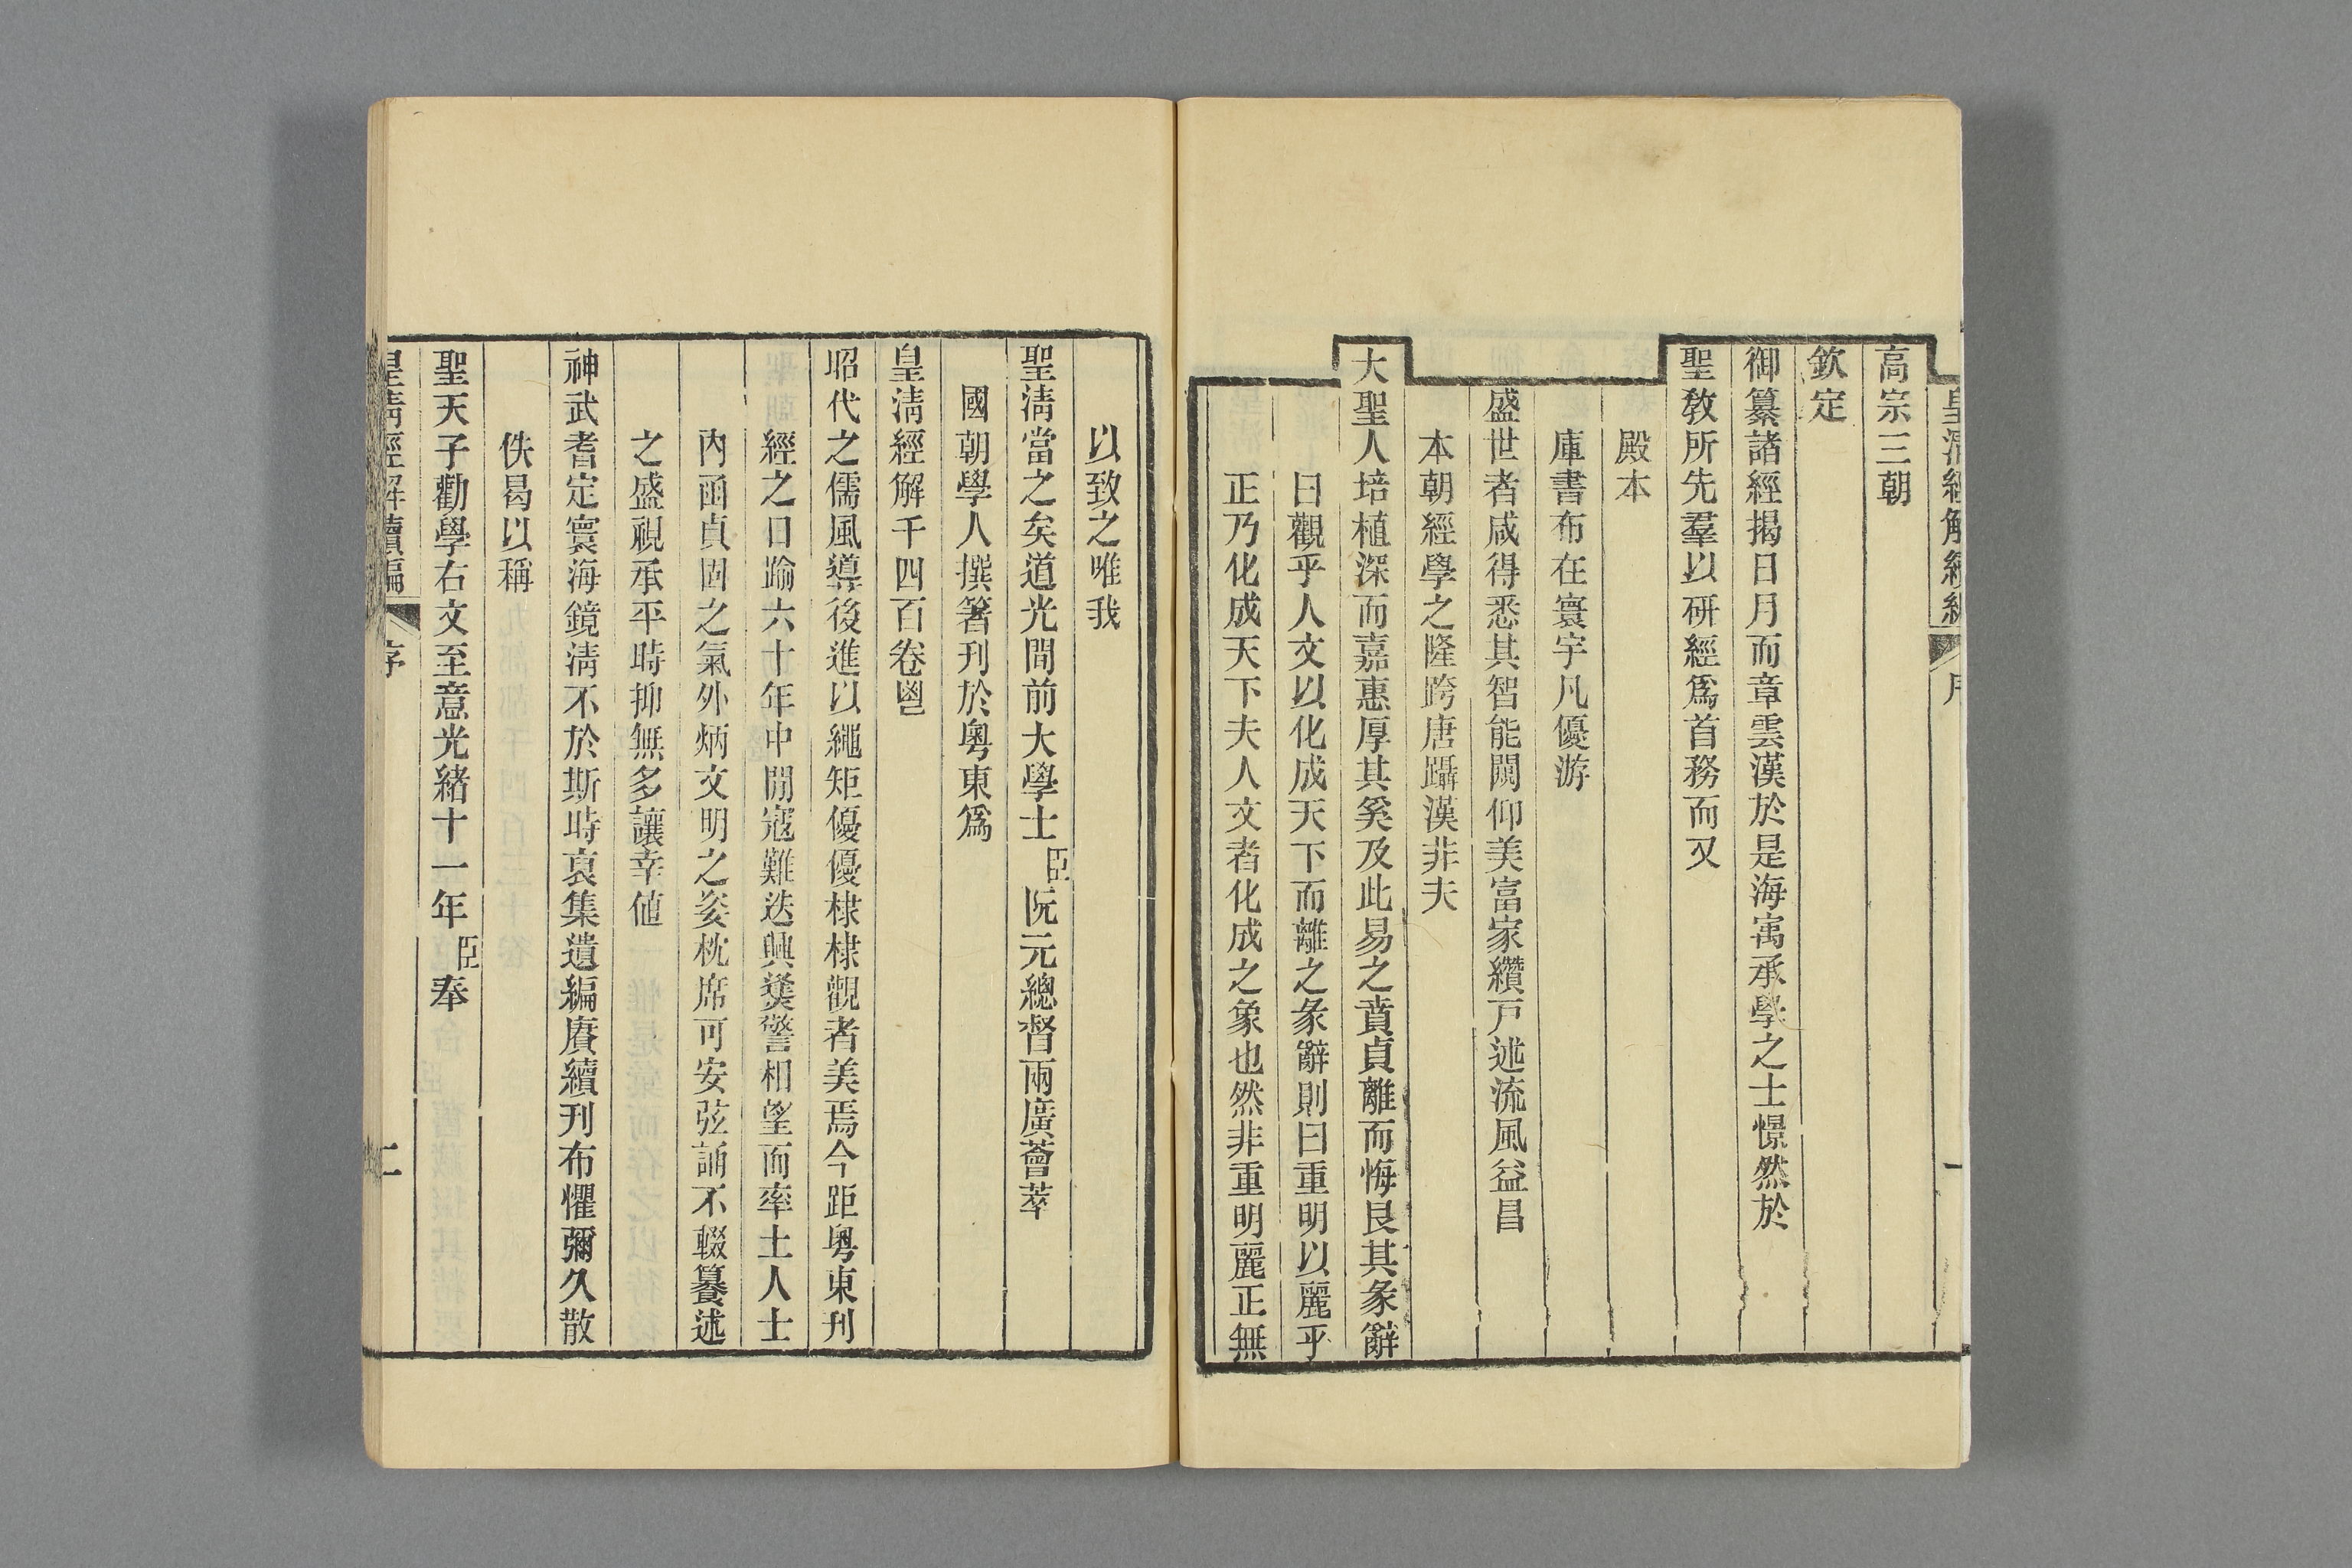 高宗三朝
欽定
御纂諸經揭日月而章雲漢於是海寓承學之士憬然於
聖教所先羣以研經爲首務而又
殿本
庫書布在寰宇凡優游
盛世者咸得悉其智能闚仰美富家纘戸述流風益昌
本朝經學之隆跨唐躡漢非夫
大聖人培植深而嘉惠厚其奚及此易之賁貞離而悔艮其彖辭
曰觀乎人文以化成天下而離之彖辭則曰重明以麗乎
正乃化成天下夫人文者化成之象也然非重明麗正無
以致之唯我
聖淸當之矣道光閒前大學士臣阮元總督兩廣薈萃
國朝學人撰箸刊於粵東爲
皇淸經解千四百卷鬯
昭代之儒風導後進以繩矩優優棣棣觀者美焉今距粵東刊
經之日踰六十年中閒寇難迭興燧警相望而率土人士
內函貞固之氣外炳文明之姿枕席可安弦誦不輟纂述
之盛視承平時抑無多讓幸值
神武耆定寰海鏡淸不於斯時裒集遺編賡續刊布懼彌久散
佚曷以稱
聖天子勸學右文至意光緒十一年臣奉
皇淸經解續編
序
二